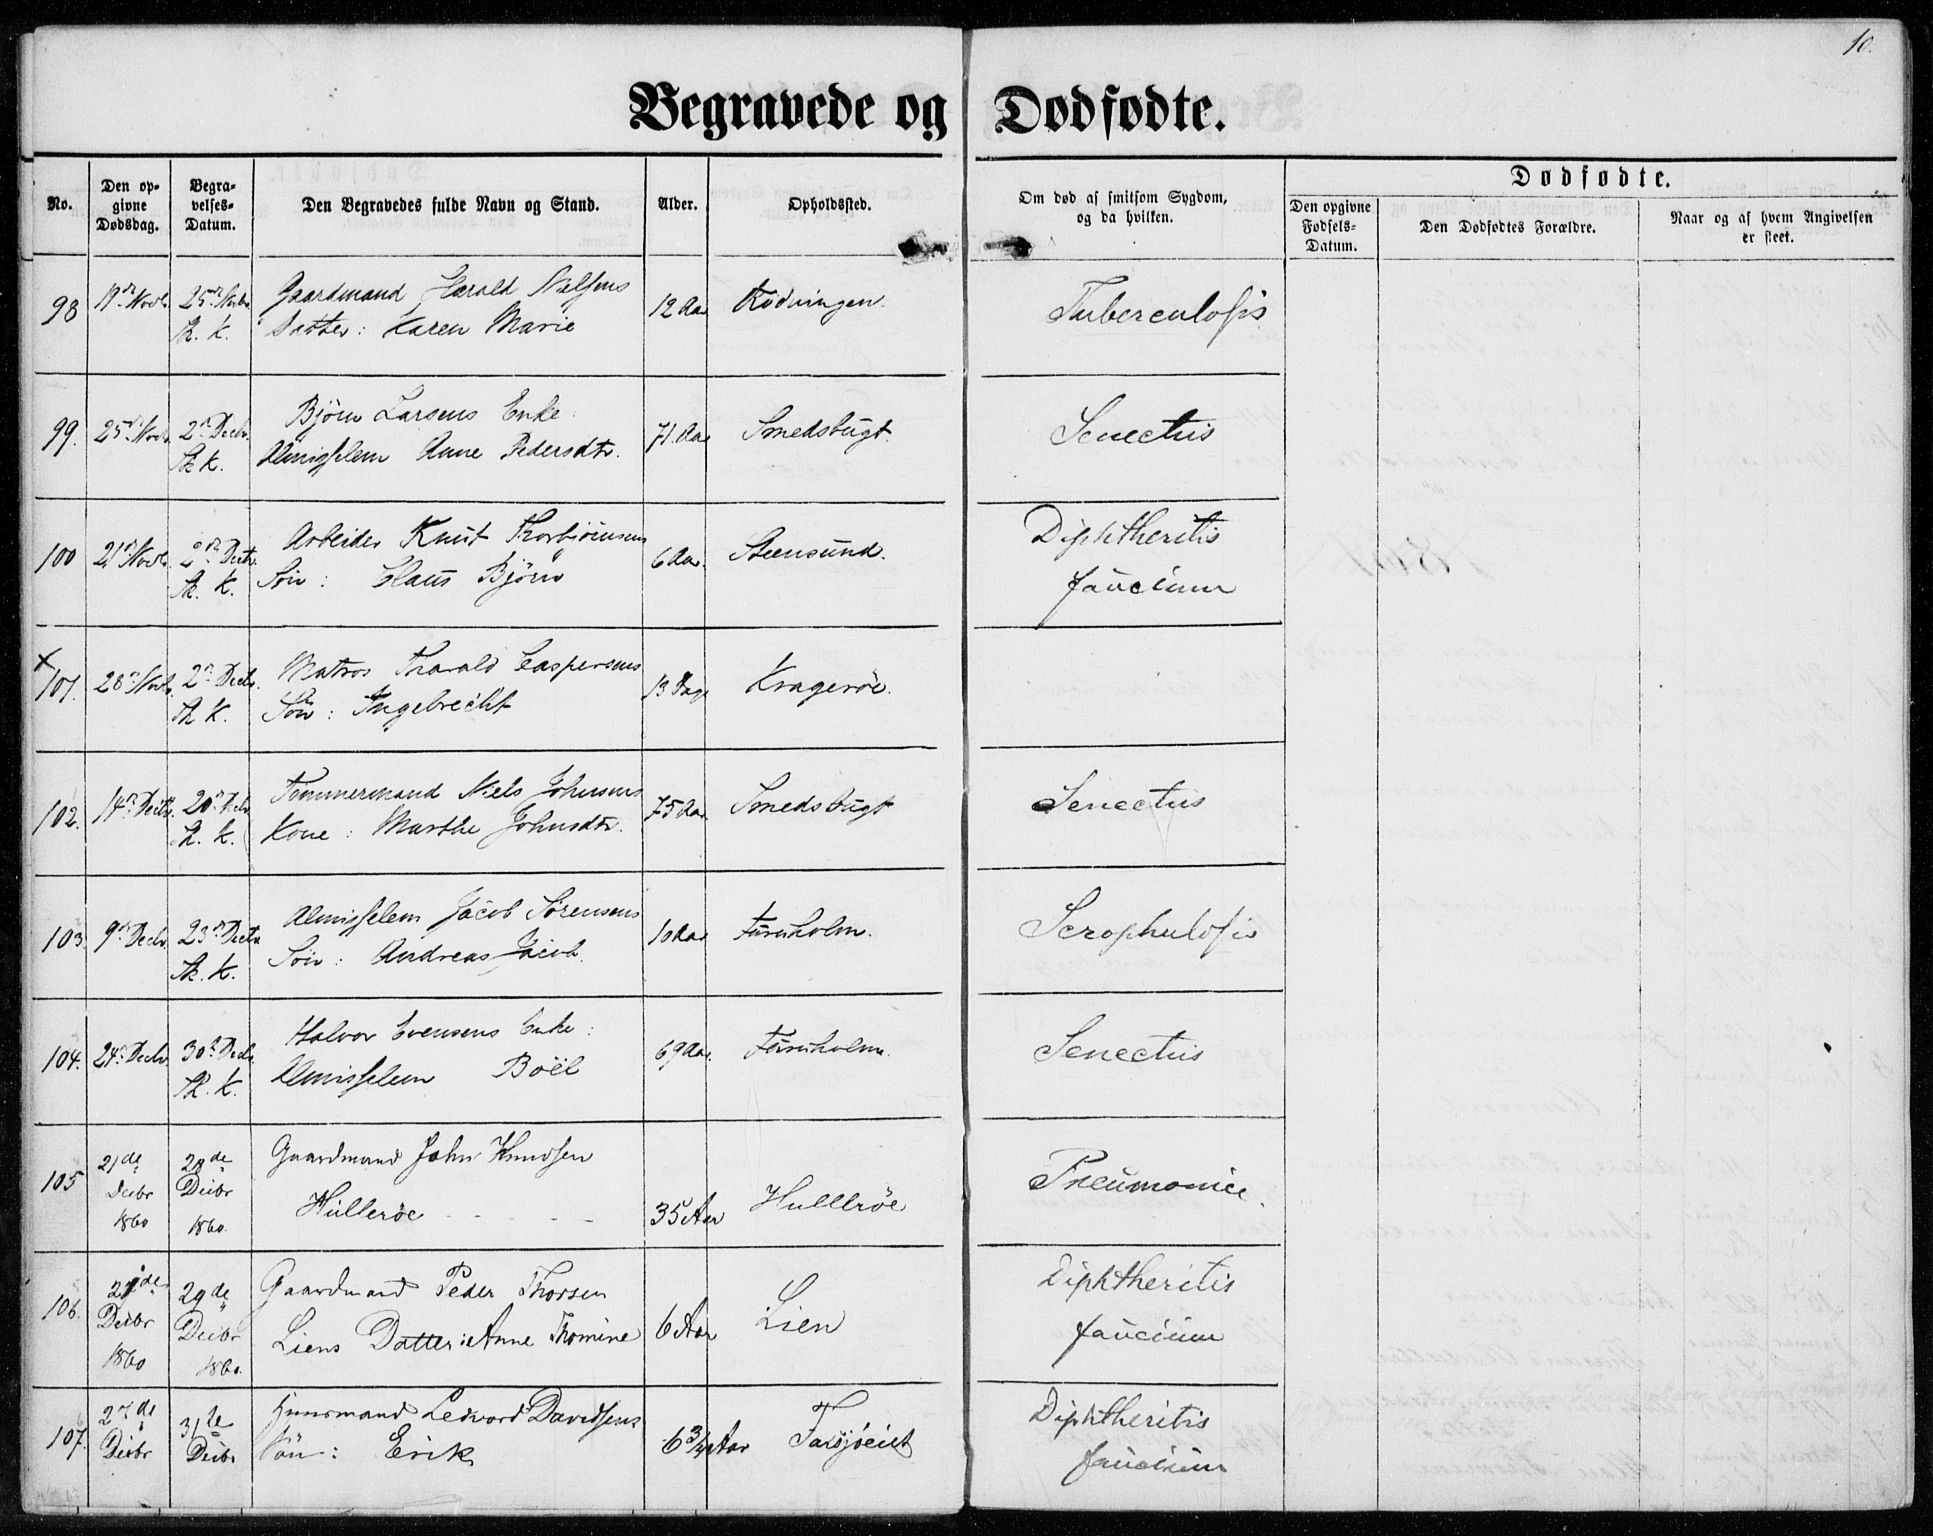 10.
Begravede og Dødfødte.
No.
Den op-
givne
Dødsdag.
Begra-
velses-
Datum.
Den Begravedes fulde Navn og Stand.
Alder.
Opholdssted.
Om død af smitsom Sygdom,
og da hvilken.
Dødfødte.
Den opgivne
Fødsels-
Datum.
Den Dødfødtes Forældre.
Naar og af hvem Angivelsen
er skeet.
98 19de Novb. 25de Novbr. Gaardmand Harald Nielsens 12 Aar Rødningen. Tuberculosis
Th. K. Datter: Karen Marie
99. 25de Novb. 2den Decbr. Bjørn Larsens Enke 71 Aar Smedsbugt. Senectus
Th. K. Almisselem Anne Pedersdtr.
100 21de Novb. 2den Decbr. Arbeider Knut Thorbjørnsens 6 Aar. Steensund. Diphtheritis
Th. K. Søn: Claus Bjørn faucium
101. 28de Novb. 2den Decbr. Matros Tharald Caspersens 13 Dage Kragerøe.
Th. K. Søn: Ingebrecht
102. 14de Decbr. 20de Decbr. Tømmermand Niels Johnsens 75 Aar. Smedsbugt Senectus
Th. K. Kone: Marthe Johnsdtr.
103. 9de Decbr. 23de Decbr. Almisselem Jacob Sørensens 10 Aar Furuholm. Scrophulosis
Th. K. Søn: Andreas Jacob.
104. 24de Decbr. 30te Decbr. Halvor Evensens Enke: 69 Aar. Furuholm. Senectus
Th. K. Almisselem Boël
105 21de 28de Gaardmand John Knudsen
Decbr Decbr Hullerøe 35 Aar Hullerøe Pneumonie.
1860 1860.
106. 29de Gaardmand Peder Thorsen Diphtheritis
Decbr Decbr Liens Datter: Anne Thomine 6 Aar Lien faucium
1860 1860.
107. 27de 31te Huusmand Ledvord Davidsens Diphtheritis
Decbr Decbr Søn: Erik 6 3/4 Aar faucium